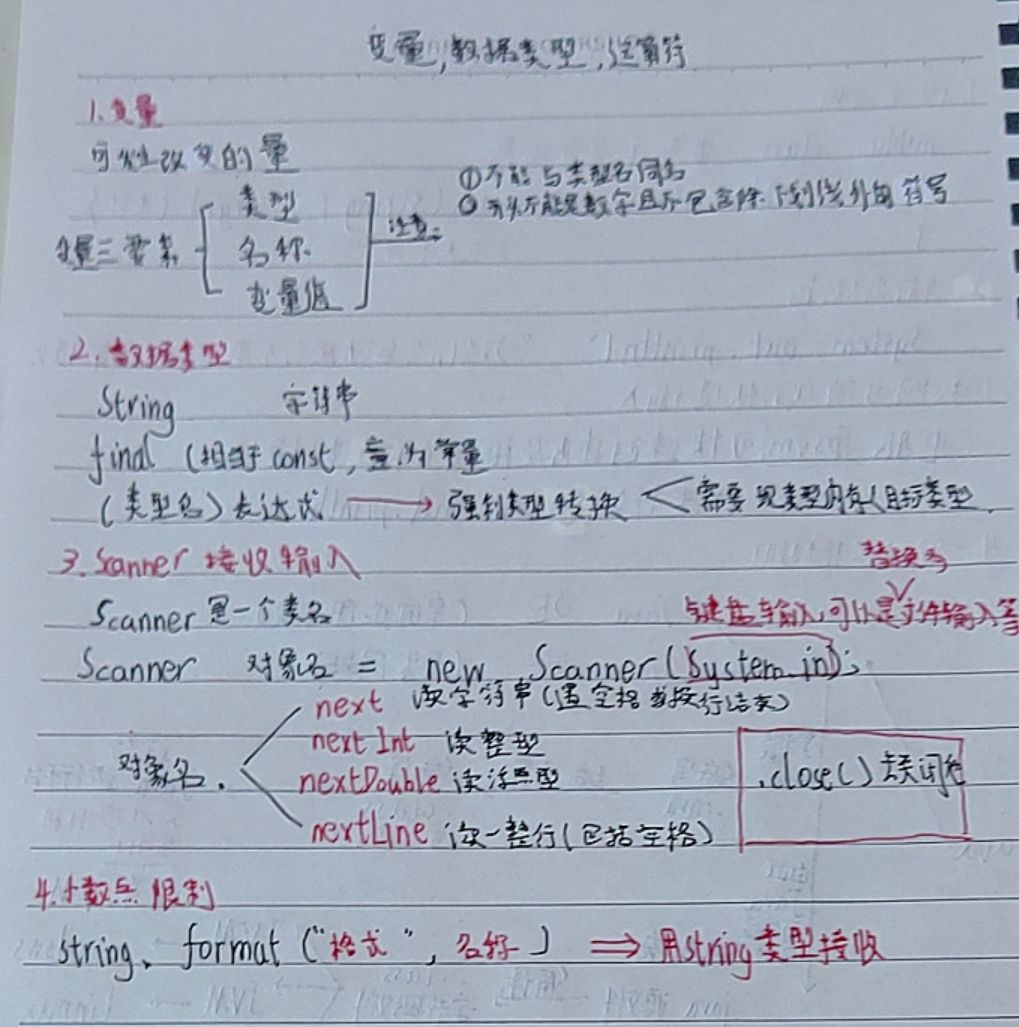 变量,数据类型,运算符
1.变量
可发生改变的量
变量三要素 类型 名称 变量值 注意:
①不能与类型名同名
②开头不能是数字且不包含除下划线外的符号
2.数据类型
String 字符串
final (相当于const,意为常量
(类型名)表达式 → 强制类型转换 < 需要现类型内存<目标类型.
3.Scanner 接收输入
替换为
Scanner是一个类名
键盘输入,可以是文件输入等
Scanner 对象名 = new Scanner(System.in);
对象名.
next 读字符串(遇空格或换行结束)
nextInt 读整型
nextDouble 读浮点型
nextLine 读一整行(包括空格)
.close() 去关闭它
4.小数点限制
string. format ("格式", 名称) ⇒ 用string类型接收